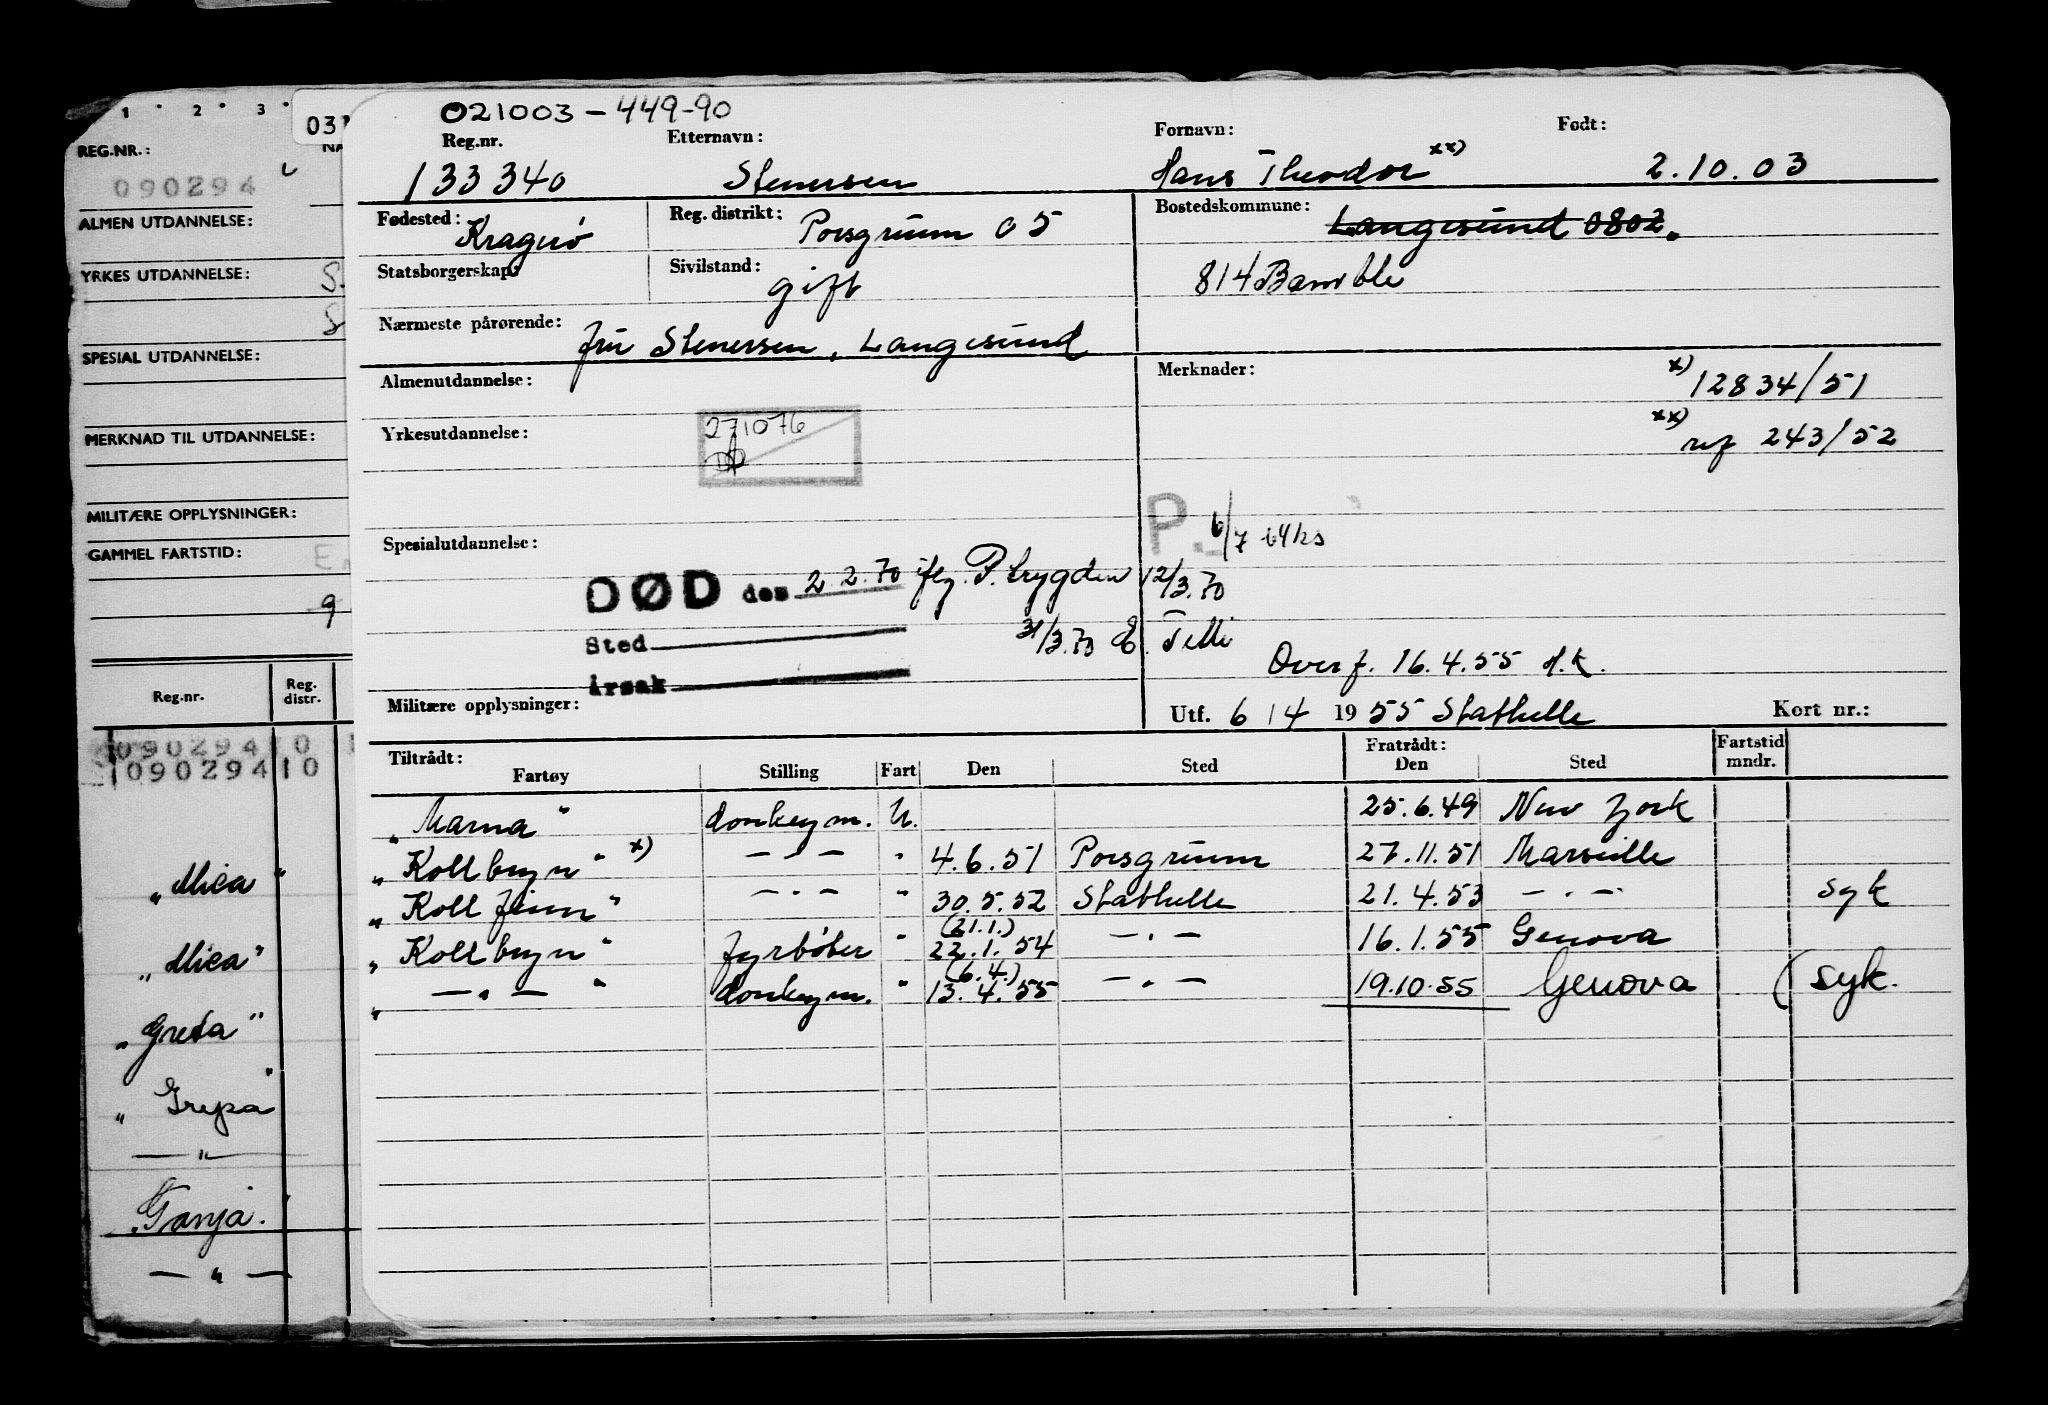 1 2 3
031
REG.NR.:
090294
ALMEN UTDANNELSE:
YRKES UTDANNELSE:
SPESIAL UTDANNELSE:
MERKNAD TIL UTDANNELSE:
MILITÆRE OPPLYSNINGER:
GAMMEL FARTSTID:
9
Reg.nr. Reg. distr.
090294 0
090294 10
„Mica"
„Mica"
„Greta"
„Grepa"
— " —
„Tanja"
— " —
021003-449-90
Reg.nr. Etternavn: Fornavn: Født:
133340 Stenersen Hans Theodor xx) 2.10.03
Fødested: Kragerø Reg. distrikt: Porsgrunn 05 Bostedskommune: Langesund 0802.
Statsborgerskap: Sivilstand: gift 814 Bamble
Nærmeste pårørende: fru Stenersen, Langesund
Almenutdannelse: Merknader: x) 12834/51
Yrkesutdannelse: 271076 xx) ref 243/52
P. 6/7 64 ks
Spesialutdannelse:
DØD den 2.2.70 iflg. P. trygden 12/3.70
Sted 31/3.70
Årsak
Overf. 16.4.55 H.K.
Militære opplysninger: Utf. 6 / 4 1955 Stathelle Kort nr.:
Tiltrådt: Fratrådt: Fartstid
Fartøy Stilling Fart Den Sted Den Sted mndr.
„Marna" donkeym. U. 25.6.49 New York
„Kollbryn" x) — . — " 4.6.51 Porsgrunn 27.11.51 Marseille
„Kollfinn" — . — " 30.5.52 Stathelle 21.4.53 — . — syk
„Kollbryn" fyrbøter " (21.1.) 22.1.54 — . — 16.1.55 Genova
„ — . — " donkeym. " (6.4.) 13.4.55 — . — 19.10.55 Genova ( syk.